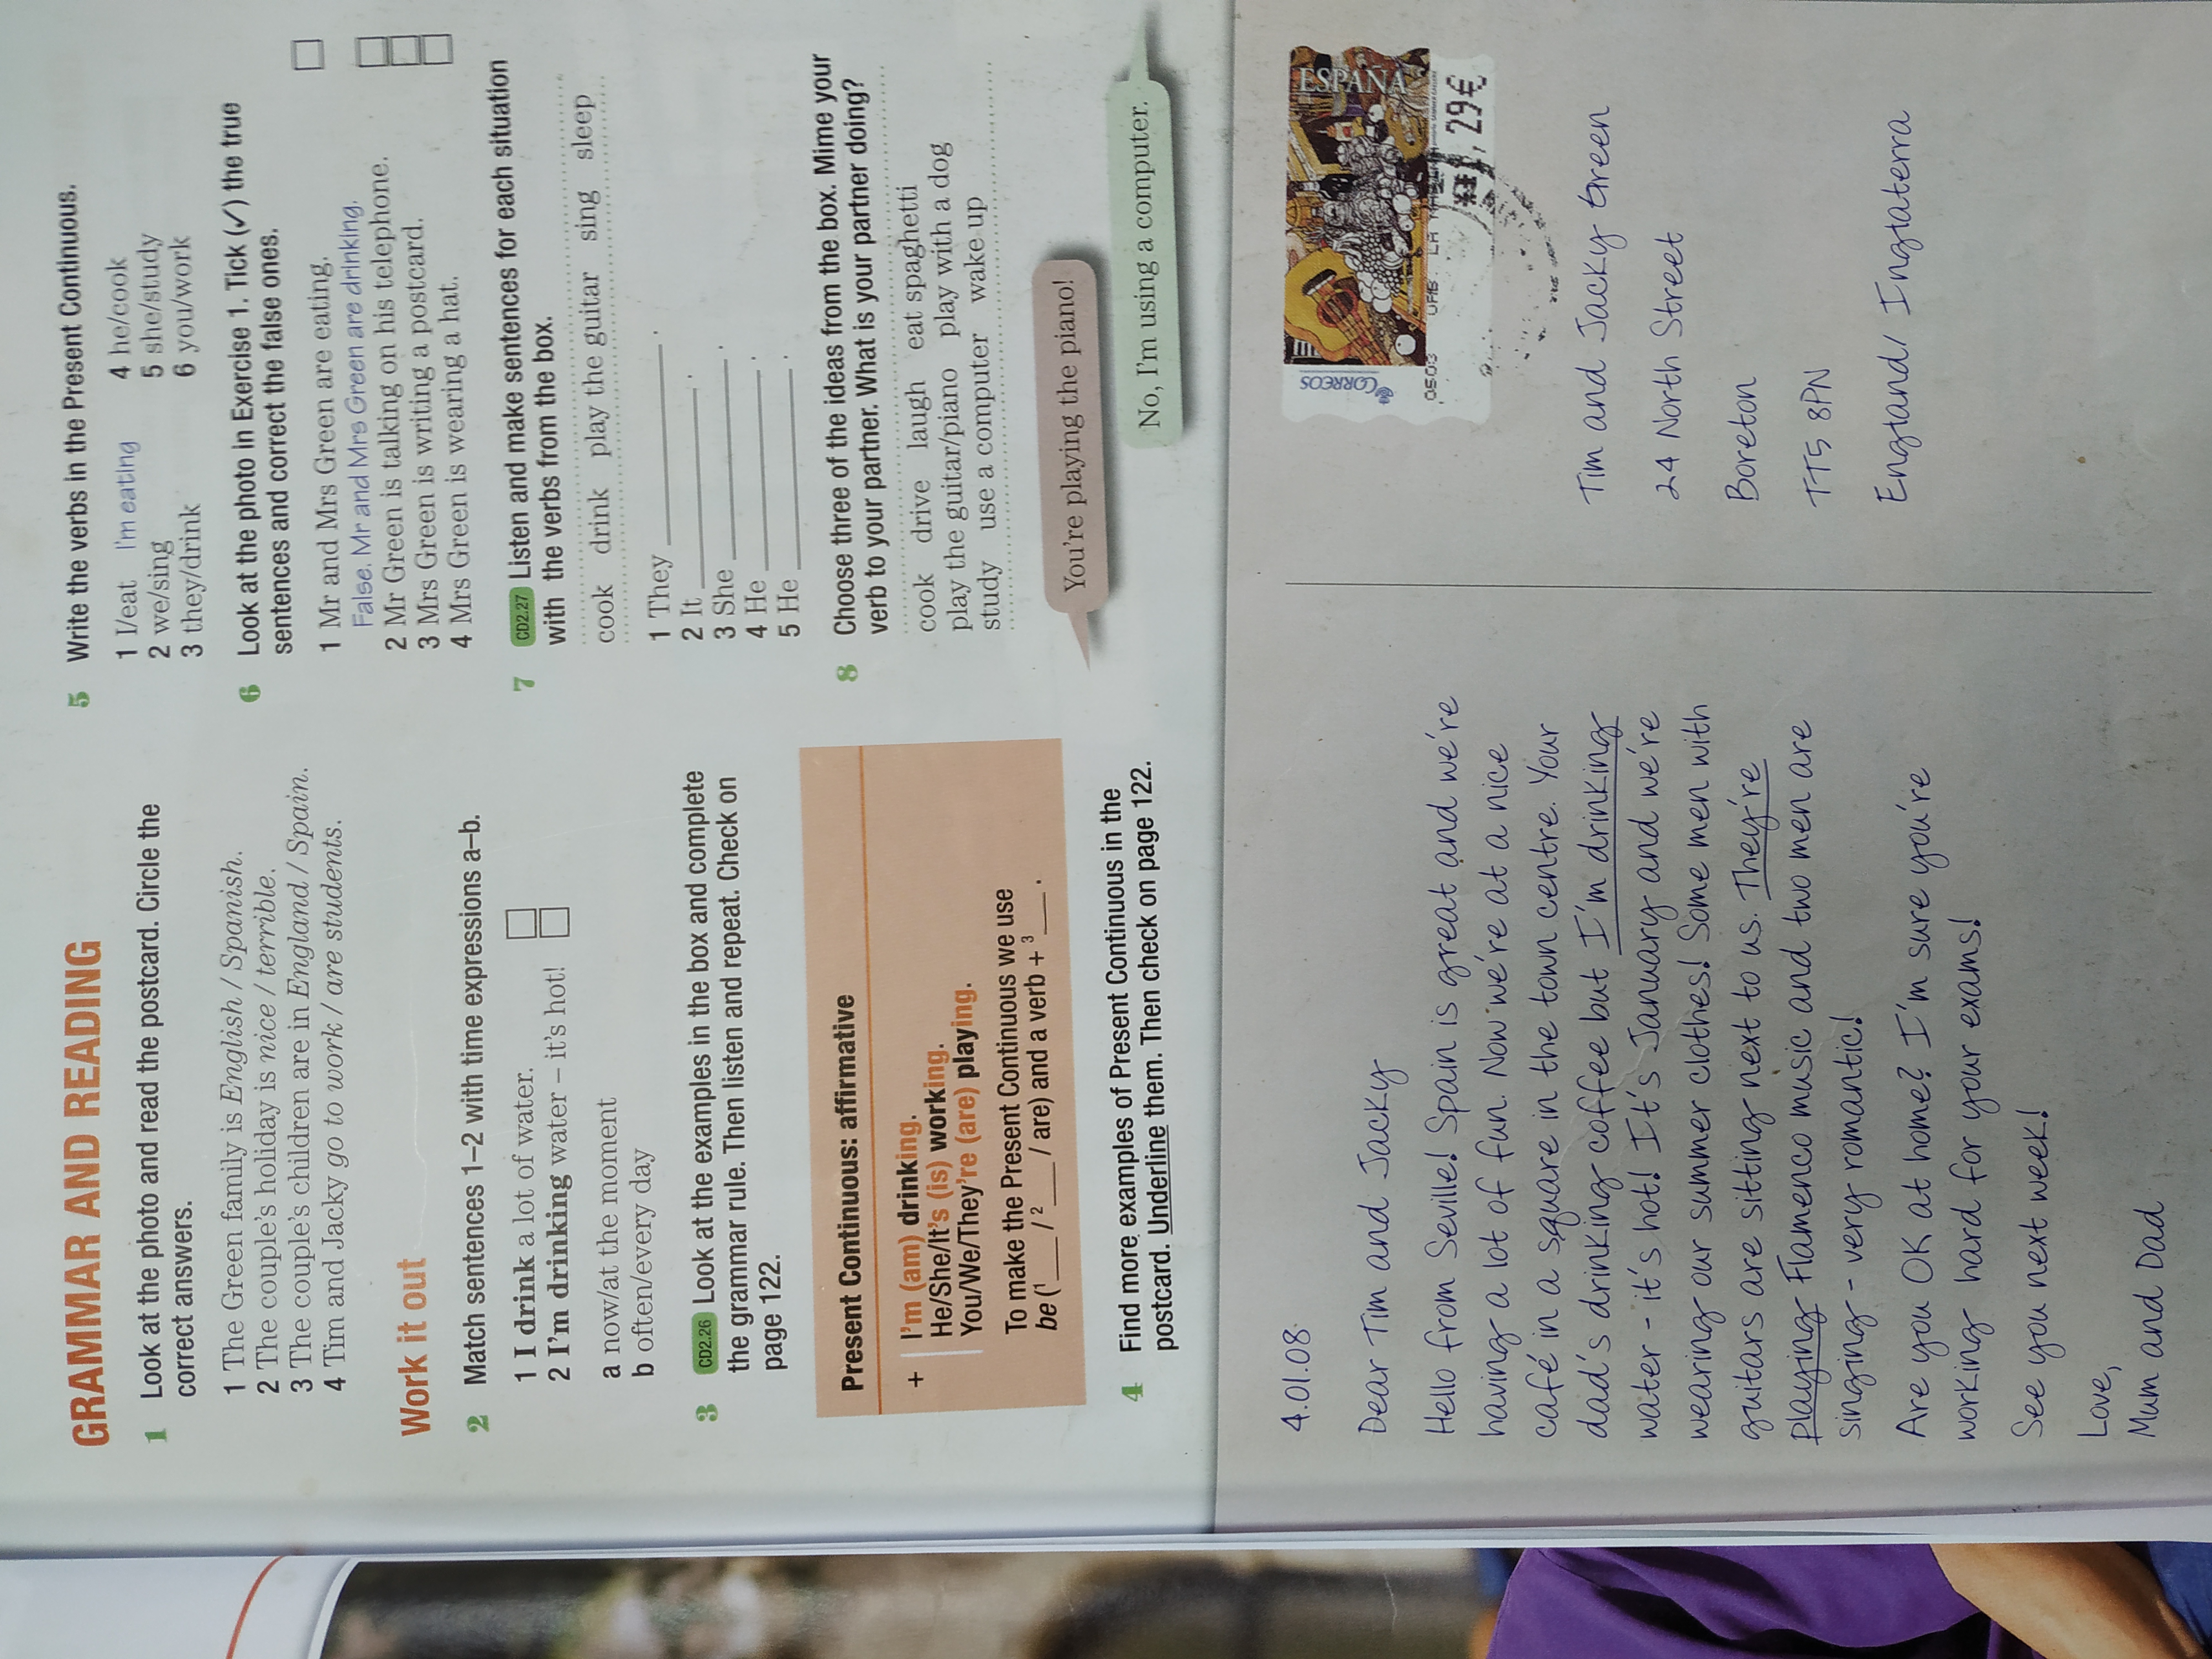 GRAMMAR AND READING
1 Look at the photo and read the postcard. Circle the
correct answers.
1 The Green family is English / Spanish.
2 The couple's holiday is nice / terrible.
3 The couple's children are in England / Spain.
4 Tim and Jacky go to work / are students.
Work it out
2 Match sentences 1–2 with time expressions a–b.
1 I drink a lot of water.
2 I'm drinking water – it's hot!
a now/at the moment
b often/every day
3 CD2.26 Look at the examples in the box and complete
the grammar rule. Then listen and repeat. Check on
page 122.
Present Continuous: affirmative
+ I'm (am) drinking.
He/She/It's (is) working.
You/We/They're (are) playing.
To make the Present Continuous we use
be (1___ / 2___ / are) and a verb + 3___.
4 Find more examples of Present Continuous in the
postcard. Underline them. Then check on page 122.
5 Write the verbs in the Present Continuous.
1 I/eat I'm eating
2 we/sing
3 they/drink
4 he/cook
5 she/study
6 you/work
6 Look at the photo in Exercise 1. Tick (✓) the true
sentences and correct the false ones.
1 Mr and Mrs Green are eating.
False. Mr and Mrs Green are drinking.
2 Mr Green is talking on his telephone.
3 Mrs Green is writing a postcard.
4 Mrs Green is wearing a hat.
7 CD2.27 Listen and make sentences for each situation
with the verbs from the box.
cook drink play the guitar sing sleep
1 They ______.
2 It ______.
3 She ______.
4 He ______.
5 He ______.
8 Choose three of the ideas from the box. Mime your
verb to your partner. What is your partner doing?
cook drive laugh eat spaghetti
play the guitar/piano play with a dog
study use a computer wake up
You're playing the piano!
No, I'm using a computer.
4.01.08
Dear Tim and Jacky
Hello from Seville! Spain is great and we're
having a lot of fun. Now we're at a nice
café in a square in the town centre. Your
dad's drinking coffee but I'm drinking
water - it's hot! It's January and we're
wearing our summer clothes! Some men with
guitars are sitting next to us. They're
playing Flamenco music and two men are
singing - very romantic!
Are you OK at home? I'm sure you're
working hard for your exams!
See you next week!
Love,
Mum and Dad
ESPAÑA
CORREOS
,29€
Tim and Jacky Green
24 North Street
Boreton
TT5 8PN
England/ Inglaterra